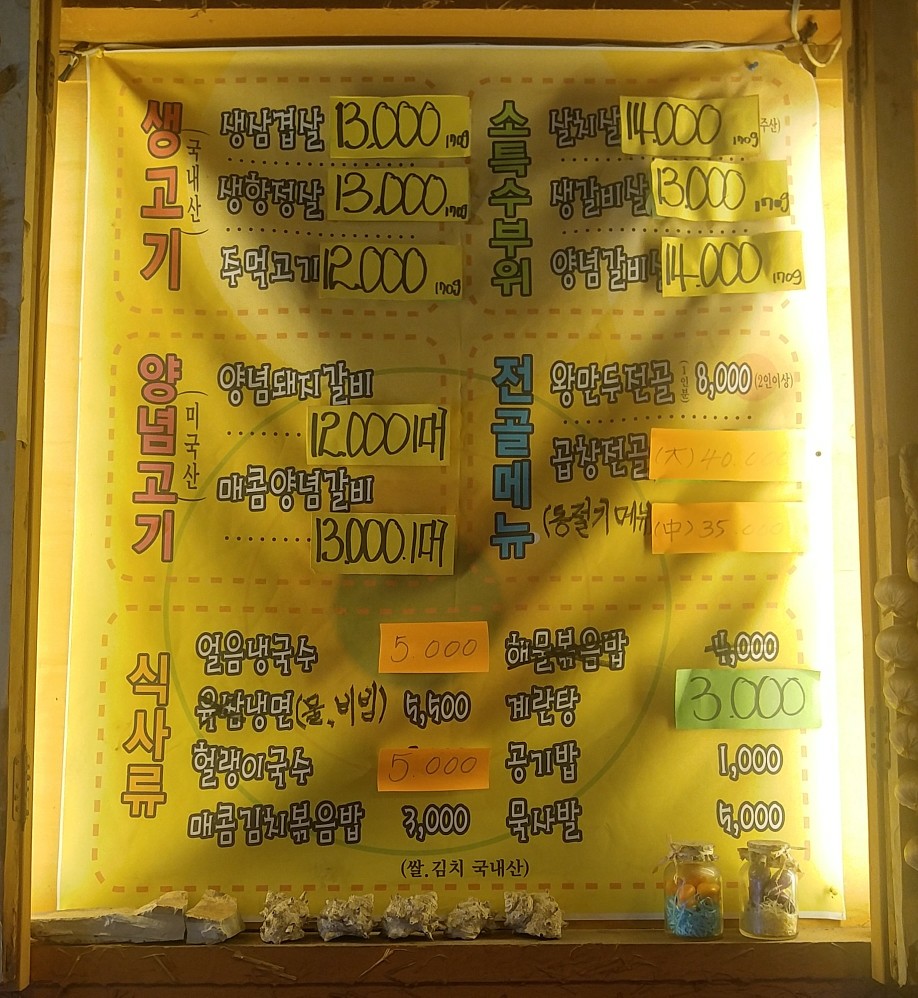 생고기
(국내산)
생삼겹살 13.000 170g
생항정살 13.000 170g
주먹고기 12.000 170g
소특수부위
살치살 14.000 170g 주산)
생갈비살 13.000 170g
양념갈비살 14.000 170g
양념고기
(미국산)
양념돼지갈비
12.000 1대
매콤양념갈비
13.000. 1대
전골메뉴
왕만두전골 (1인분) 8,000 (2인이상)
곱창전골 (大) 40.000
(동절기메뉴 (中) 35.000
식사류
얼음냉국수 5.000
냉면(물,비빔) 5,500
헐랭이국수 5.000
매콤김치볶음밥 3,000
해물볶음밥 4,000
계란탕 3.000
공기밥 1,000
묵사발 5,000
(쌀.김치 국내산)